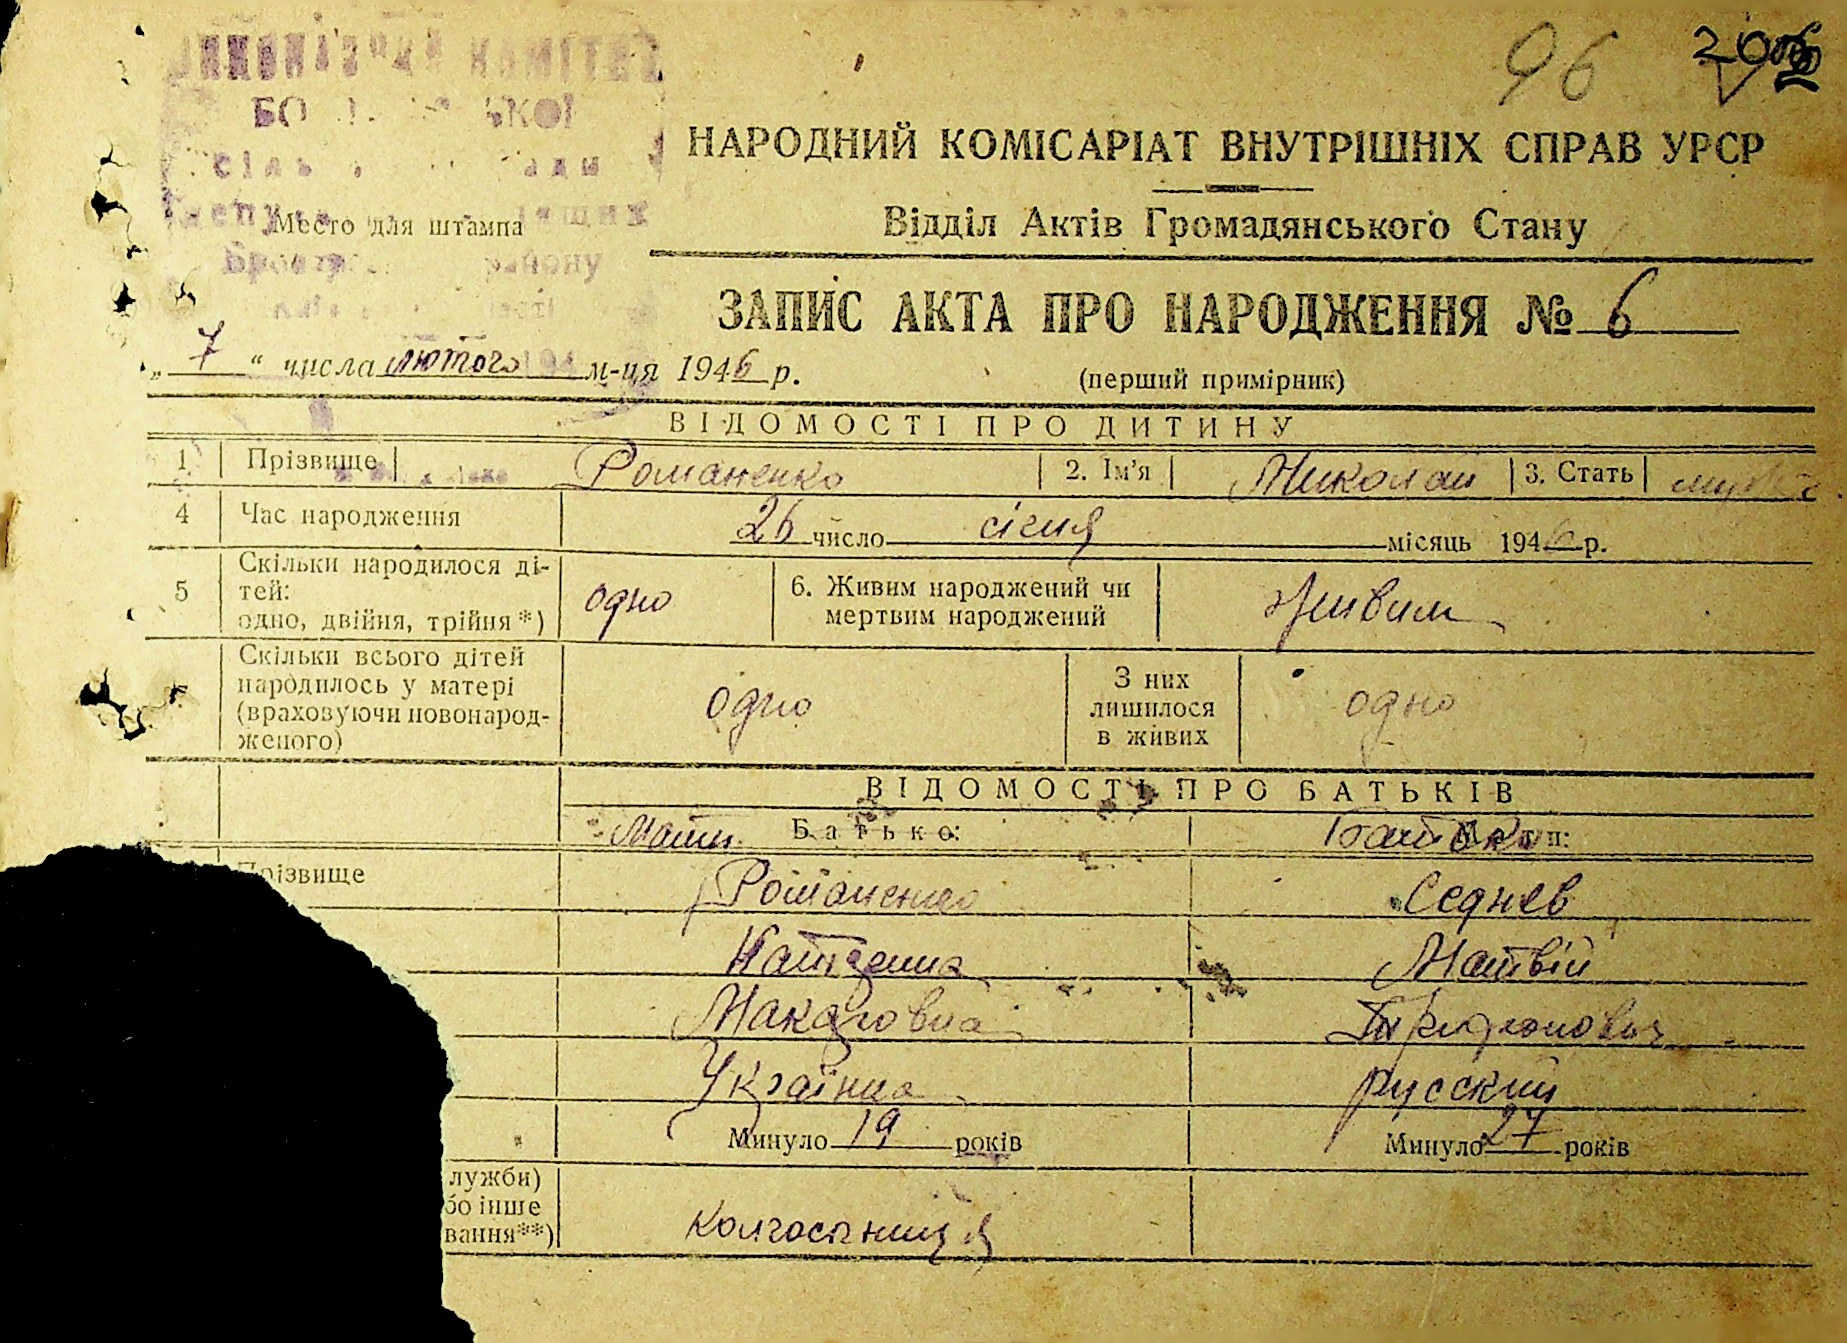 96
НАРОДНИЙ КОМІСАРІАТ ВНУТРІШНІХ СПРАВ УРСР
Место для штампа
Відділ Актів Громадянського Стану
району
ЗАПИС АКТА ПРО НАРОДЖЕННЯ № 6
„ 7 “ числа лютого м-ця 1946 р.
(перший примірник)
ВІДОМОСТІ ПРО ДИТИНУ
1 Прізвище Романенко 2. Ім'я Николай 3. Стать
4 Час народження 26 число січня місяць 1946 р.
5 Скільки народилося ді-
тей:
одно, двійня, трійня*) одно 6. Живим народжений чи
мертвим народжений живим
Скільки всього дітей
народилось у матері
(враховуючи новонарод-
женого) одно З них
лишилося
в живих одно
ВІДОМОСТІ ПРО БАТЬКІВ
Мати Батько: Батько Мати:
Прізвище Романенко Седнев
Катерина Матвій
Макаровна Трифонович
Українка русский
Минуло 19 років Минуло 27 років
лужби)
бо інше
вання**) Колгоспниця